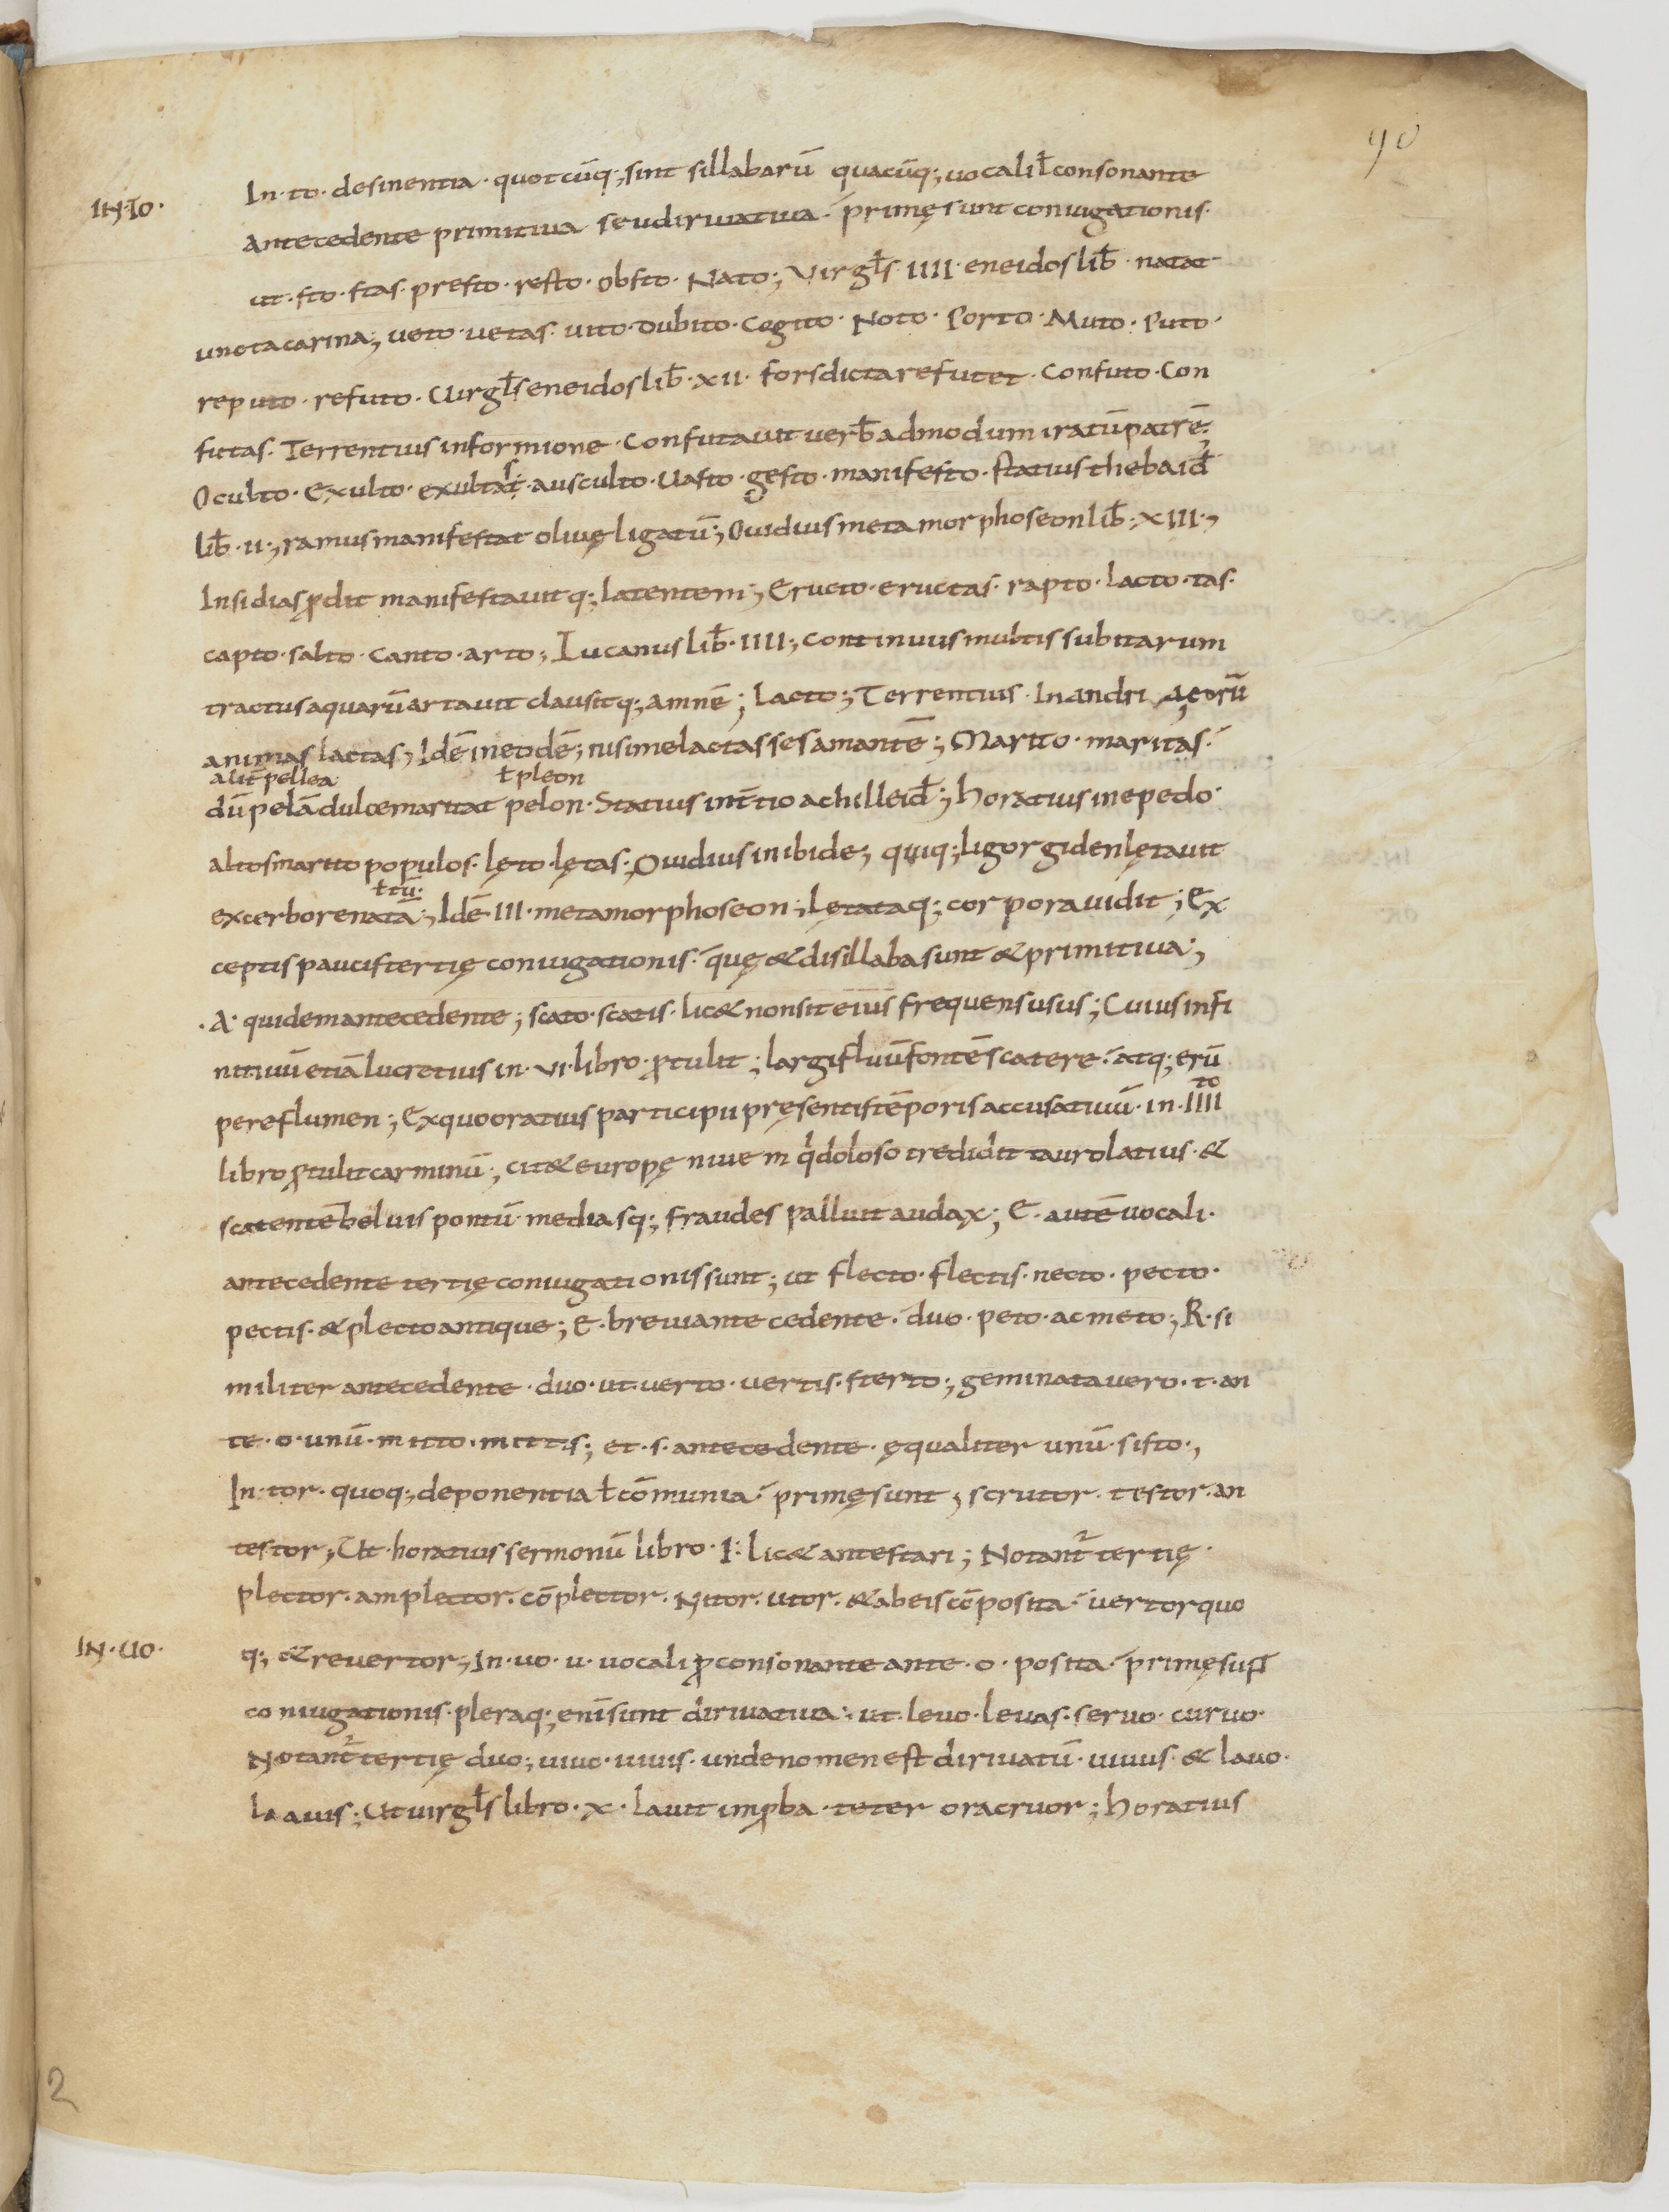 90
IN·TO·
In·to· desinentia· quotcūq;, sint sillabarū quacūq;, uocali ł consonante
antecedente primitiua seu diriuatiua· primę sunt coniugationis·
ut· sto· stas· presto· resto· obsto· Nato; Virgłs IIII· eneidos lib̄· natat
uncta carina;, ueto· uetas· uito· dubito· Cogito· Noto· Porto· Muto· Puto·
reputo· refuto· Uirgłs eneidos lib̄· XII· fors dicta refutet· Confuto· Con
futas· Terrentius in formione· Confutauit uerb̄ admodum iratū patrē;
Oculto· Exulto· exultas· ausculto· Uasto· gesto· manifesto· statius thebaid̄
lib̄· II·, ramus manifestat oliuę ligatū; Ouidius metamorphoseon lib̄· XIII·,
Insidias ꝓdit manifestauitq;, latentem; Eructo· eructas· rapto· lacto· tas·
capto· salto· canto· arto; Lucanus lib̄· IIII; continuus multis subitarum
tractus aquarū artauit clausitq;, amnē; lacto; Terrentius· In andri a, eorū
animas lactas; Idē in eodē; nisi me lactasses amantē; Marito· maritas·
alit̄ pellea ł pleon
dū pelā dulce maritat pelon· Statius in t̄tio achilleid̄; horatius in epedo·
altos marito populos· lęto· lętas; Ouidius in ibide;, quiq;, ligorgiden lętauit
ł tū·
ex cerbore natā;, Idē· III· metamorphoseon; lętataq;, corpora uidit; Ex
ceptis paucis tertię coniugationis· quę & disillaba sunt & primitiua;
·A· quidem antecedente; scato· scatis· lic& non sit eius frequens usus; Cuius infi
nitiuū etiā lucretius in· VI· libro· ꝓtulit; largifluū fontē scatere· atq;, erū
pere flumen; Ex quo oratius participii pręsentis tēporis accusatiuū· in· IIIIto
libro ꝓtulit carminū; cit& europę niuem q̄d doloso tredidit tauro latius· &
scatentē beluis pontū mediasq;, fraudes palluit audax; E· autē uocali·
antecedente tertię coniugationis sunt; ut flecto· flectis· necto· pecto·
pectis· & plecto antique; E· breui antecedente· duo· peto· ac meto; R· si
militer antecedente· duo· ut· uerto· uertis· sterto; geminata uero· t· an
te· o· unū· mitto· mittis; et· s· antecedente· ęqualiter unū· sisto·,
In· tor· quoq;, deponentia ł cōmunia· primę sunt; scrutor· testor· an
testor; Ut· horatius sermonū libro· I· lic& antestari; Notant᷑ tertię·
plector· amplector· cōplector· Nitor· utor· & ab eis cōposita· uertor quo
IN·UO·
q;, & reuertor; In· uo· u· uocali ꝓ consonante ante· o· posita· primę sunt
coniugationis· pleraq;, enī sunt diriuatiua· ut· leuo· leuas· seruo· curuo·
Notant᷑ tertię duo; uiuo· uiuis· unde nomen est diriuatū· uiuus· & lauo·
la auis; Ut uirgłs libro· X· lauit imꝓba· teter ora cruor; horatius
2